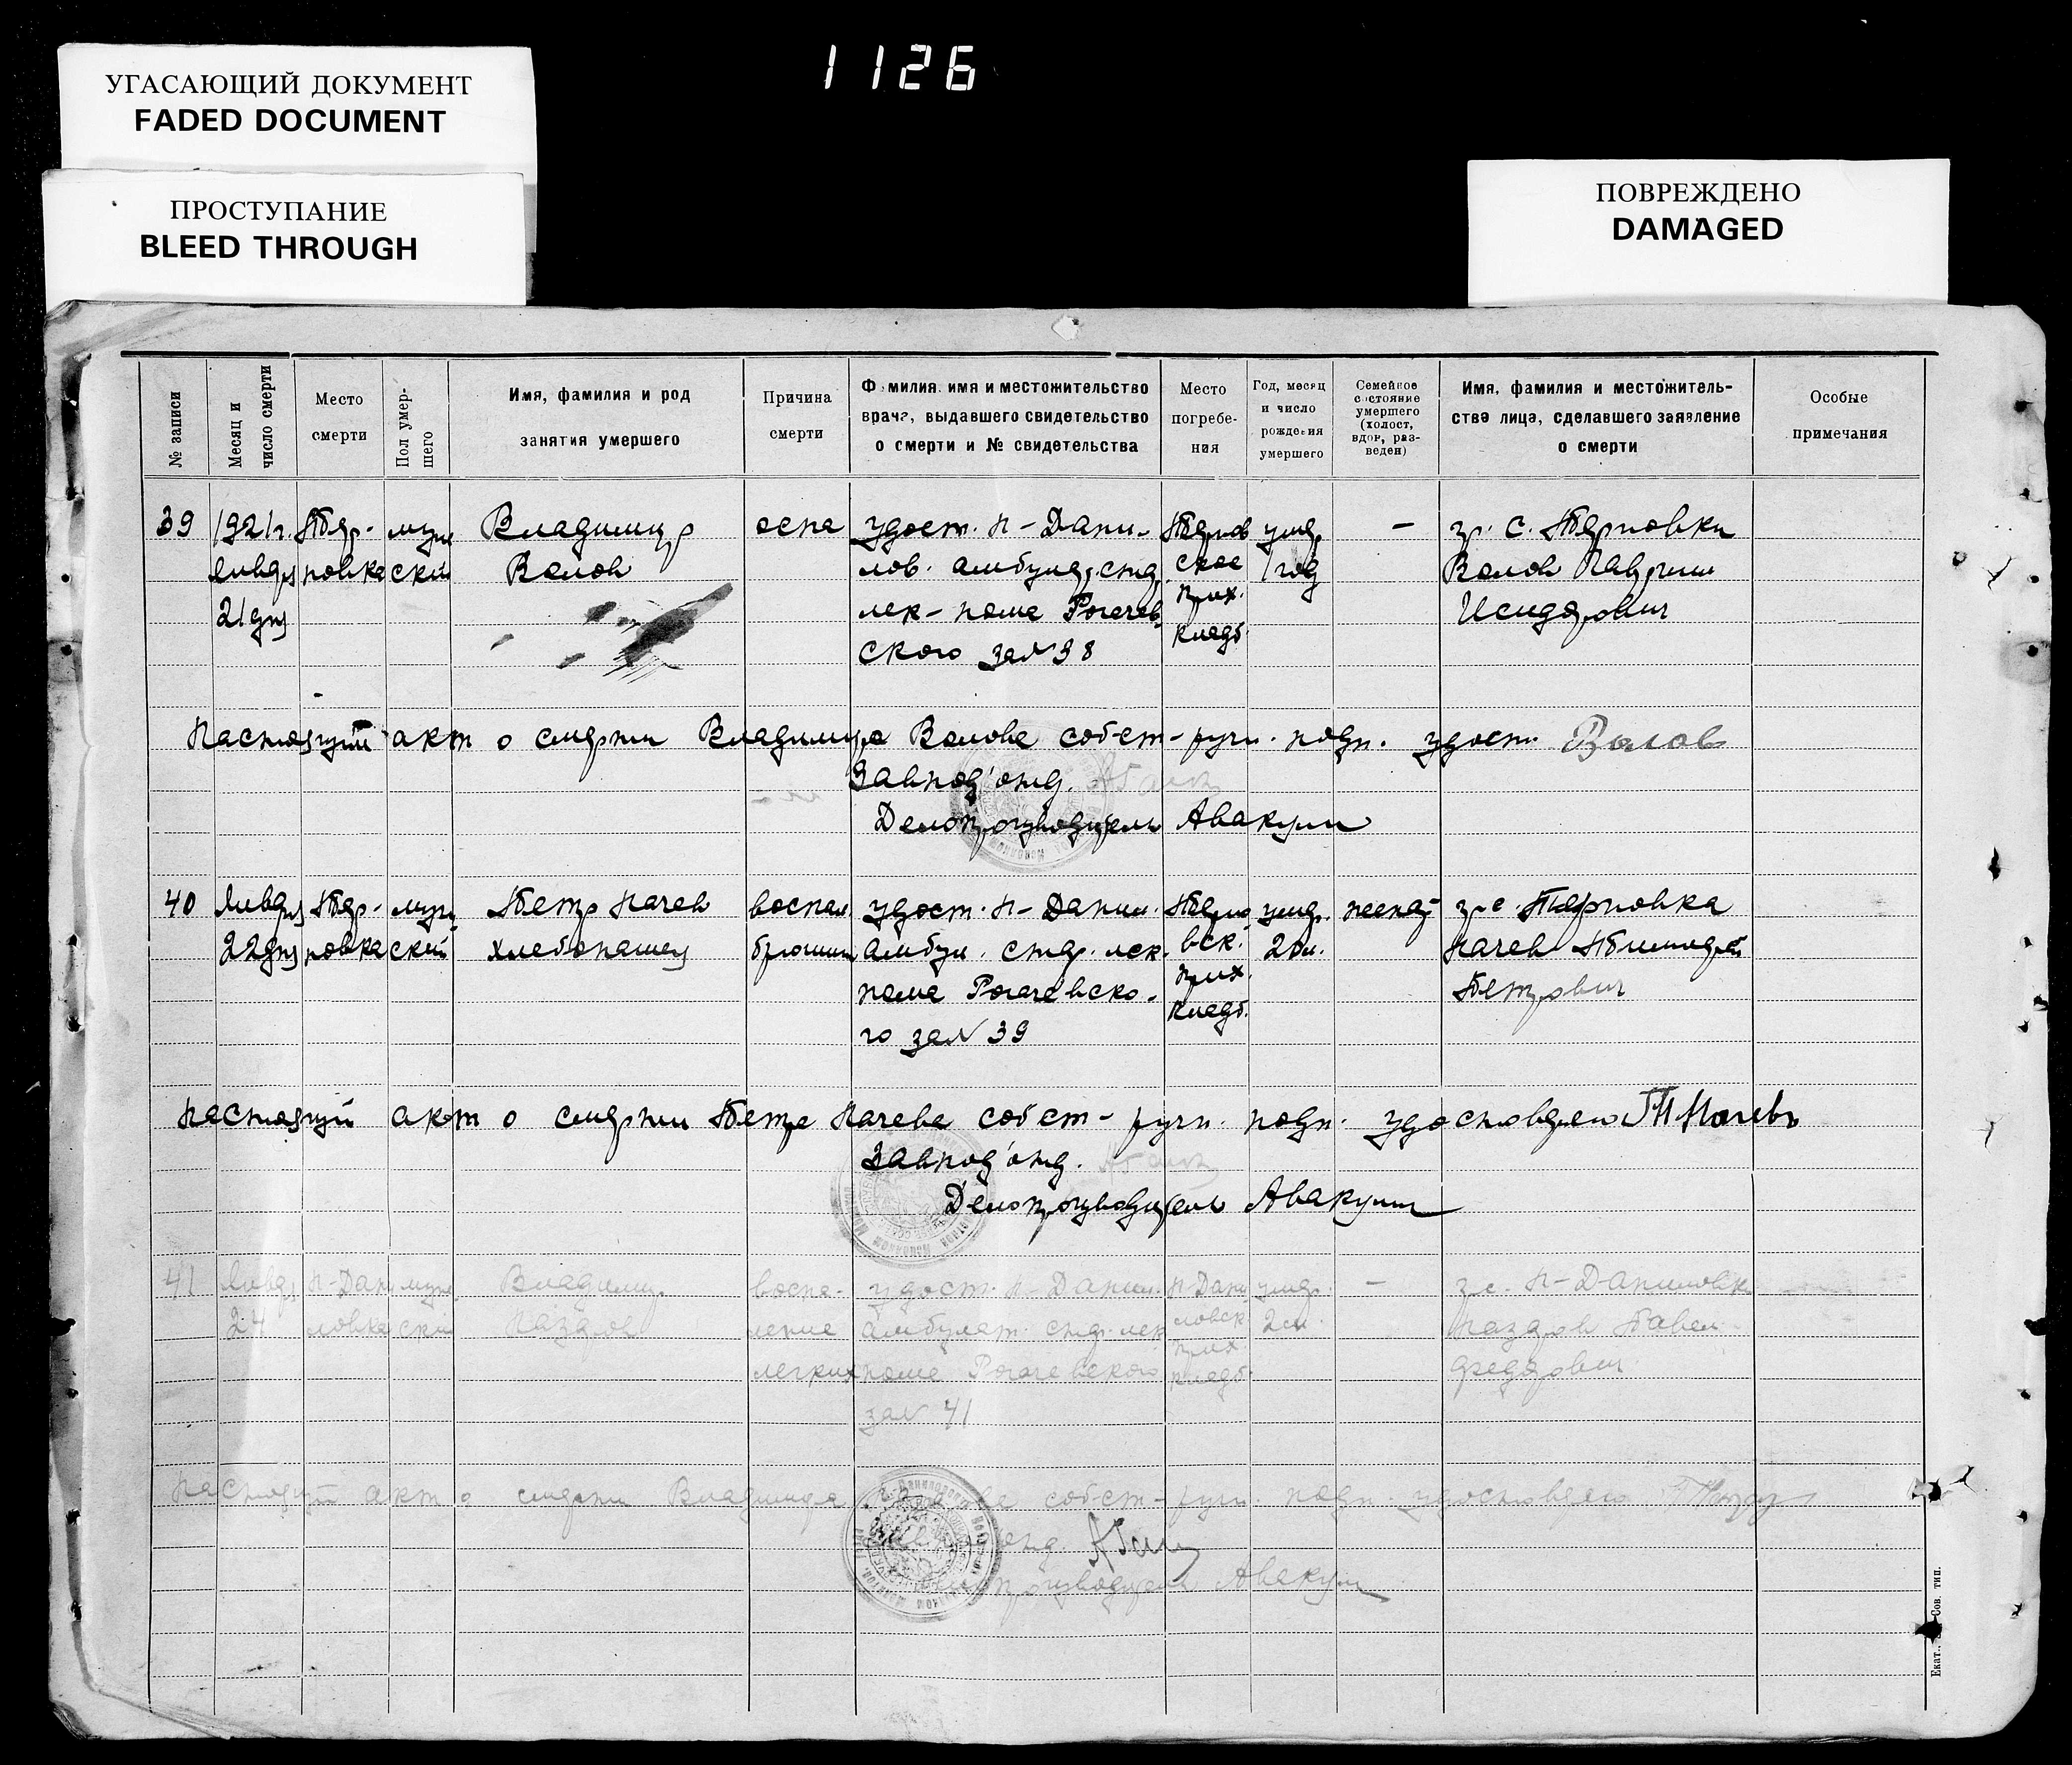 1126
УГАСАЮЩИЙ ДОКУМЕНТ
FADED DOCUMENT
ПРОСТУПАНИЕ
BLEED THROUGH
ПОВРЕЖДЕНО
DAMAGED
№ записи
Месяц и
число смерти
Место
смерти
Пол умер-
шего
Имя, фамилия и род
занятия умершего
Причина
смерти
Фамилия, имя и местожительство
врача, выдавшего свидетельство
о смерти и № свидетельства
Место
погребе-
ния
Год, месяц
и число
рождения
умершего
Семейное
состояние
умершего
(холост,
вдов, раз-
веден)
Имя, фамилия и местожитель-
ства лица, сделавшего заявление
о смерти
Особые
примечания
39
1921 г.
января
21 дня
Тер-
новка
муж
ский
Владимир
Волов
оспа
удост. Н-Дани-
лов. амбулат. стар.
лек-пома Рогачев
ского за № 38
Тернов
ское
прих.
кладб.
умер
1 год
—
гр. с. Терновки
Волов
Исидорович
Настоящий акт о смерти Владимира Волова собст-ручн. подп. удост. Волов
Завпод'отд.
Делопроизводитель Авакум
40
января
22 дня
Тер-
новка
мужс
ский
Петр Начев
хлебопашец
воспал.
брюшин
удост. Н-Данил.
амбул. стар. лек.
пома Рогачевско-
го за № 39
Терно
вск.
прих.
кладб.
умер.
гр. с. Терновка
Начев
Петрович
Настоящий акт о смерти Петра Начева собст-ручн. подп. удостоверяю Начевъ
Завпод'отд.
Делопроизводитель Авакум
41
январ
24
Н-Дани
ловка
муж.
ский
Владимир
воспа-
ление
легких
удост. Н-Данил.
амбулат. стар. лек
пома Рогачевского
за № 41
Н-Дани
ловск
прих.
кладб.
умер.
—
гр. с. Н-Даниловки
Павел
Федорович
Настоящий акт о смерти Владимира собст-ручн. подп. удостоверяю
отд.
Делопроизводитель Авакум
Екат. Сов. тип.